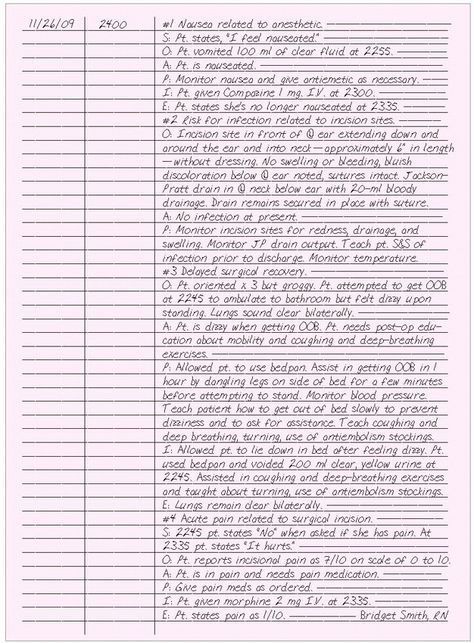 11/26/09 2400 #1 Nausea related to anesthetic.
S: Pt. states, "I feel nauseated."
O: Pt. vomited 100 ml of clear fluid at 2255.
A: Pt. is nauseated.
P: Monitor nausea and give antiemetic as necessary.
I: Pt. given Compazine 1 mg. I.V. at 2300.
E: Pt. states she's no longer nauseated at 2335.
#2 Risk for infection related to incision sites.
O: Incision site in front of Ⓛ ear extending down and
around the ear and into neck — approximately 6" in length
— without dressing. No swelling or bleeding, bluish
discoloration below Ⓛ ear noted, sutures intact. Jackson-
Pratt drain in Ⓛ neck below ear with 20-ml bloody
drainage. Drain remains secured in place with suture.
A: No infection at present.
P: Monitor incision sites for redness, drainage, and
swelling. Monitor JP drain output. Teach pt. S&S of
infection prior to discharge. Monitor temperature.
#3 Delayed surgical recovery.
O: Pt. oriented x 3 but groggy. Pt. attempted to get OOB
at 2245 to ambulate to bathroom but felt dizzy upon
standing. Lungs sound clear bilaterally.
A: Pt. is dizzy when getting OOB. Pt. needs post-op edu-
cation about mobility and coughing and deep-breathing
exercises.
P: Allowed pt. to use bedpan. Assist in getting OOB in 1
hour by dangling legs on side of bed for a few minutes
before attempting to stand. Monitor blood pressure.
Teach patient how to get out of bed slowly to prevent
dizziness and to ask for assistance. Teach coughing and
deep breathing, turning, use of antiembolism stockings.
I: Allowed pt. to lie down in bed after feeling dizzy. Pt.
used bedpan and voided 200 ml clear, yellow urine at
2245. Assisted in coughing and deep-breathing exercises
and taught about turning, use of antiembolism stockings.
E: Lungs remain clear bilaterally.
#4 Acute pain related to surgical incision.
S: 2245 pt. states "No" when asked if she has pain. At
2335 pt. states "It hurts."
O: Pt. reports incisional pain as 7/10 on scale of 0 to 10.
A: Pt. is in pain and needs pain medication.
P: Give pain meds as ordered.
I: Pt. given morphine 2 mg I.V. at 2335.
E: Pt. states pain as 1/10. Bridget Smith, RN